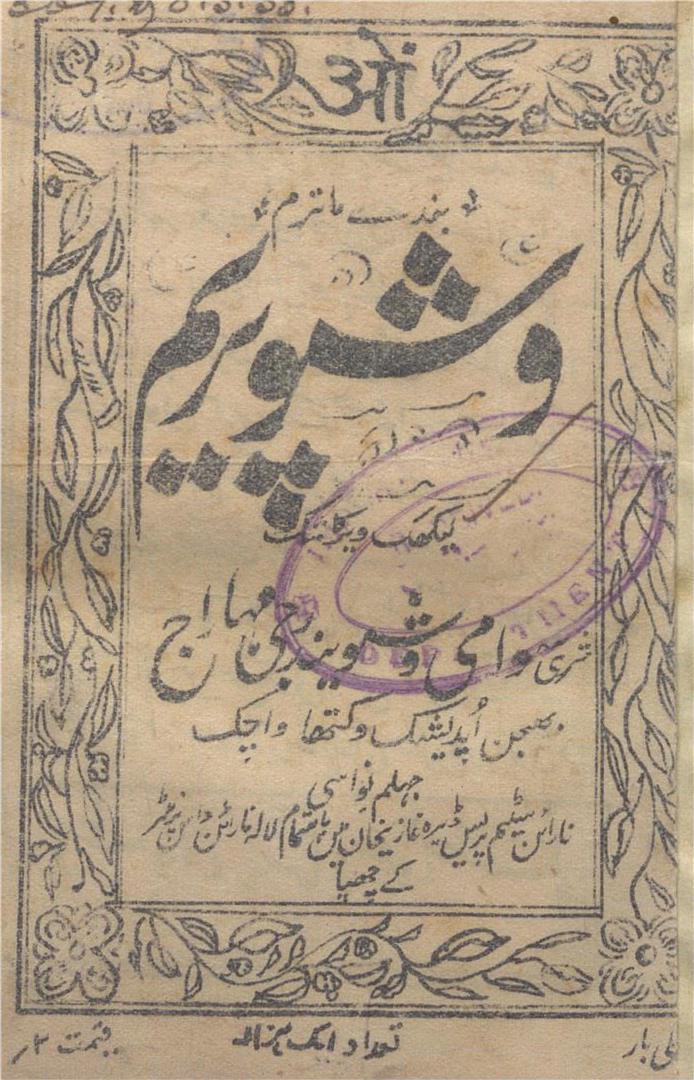 ओं
بندے ماترم
وشوپریم
لیکھک و پرکاشک
شری سوامی وشویندر جی مہاراج
بھجن اُپدیشک و کتھا واچک
جہلم نواسی
نارائن سٹیم پریس ڈیرہ غازیخان میں باہتمام لالہ نارائن داس پرنٹر
کے چھپا
بار
تعداد ایک ہزار
قیمت ۲؍